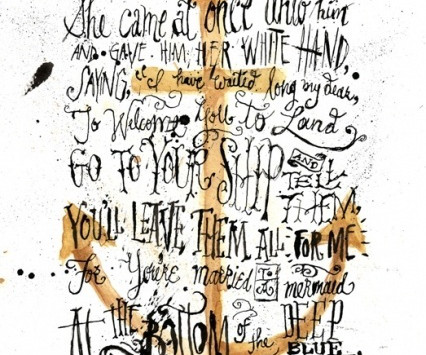 She came at once unto him
AND GAVE HIM HER WHITE HAND,
SAYING, "I have waited long my dear,
To Welcome you to Land
GO TO YOUR SHIP AND TELL THEM,
YOU'LL LEAVE THEM ALL FOR ME
For You're married TO A mermaid
AT THE BOTTOM OF the DEEP BLUE